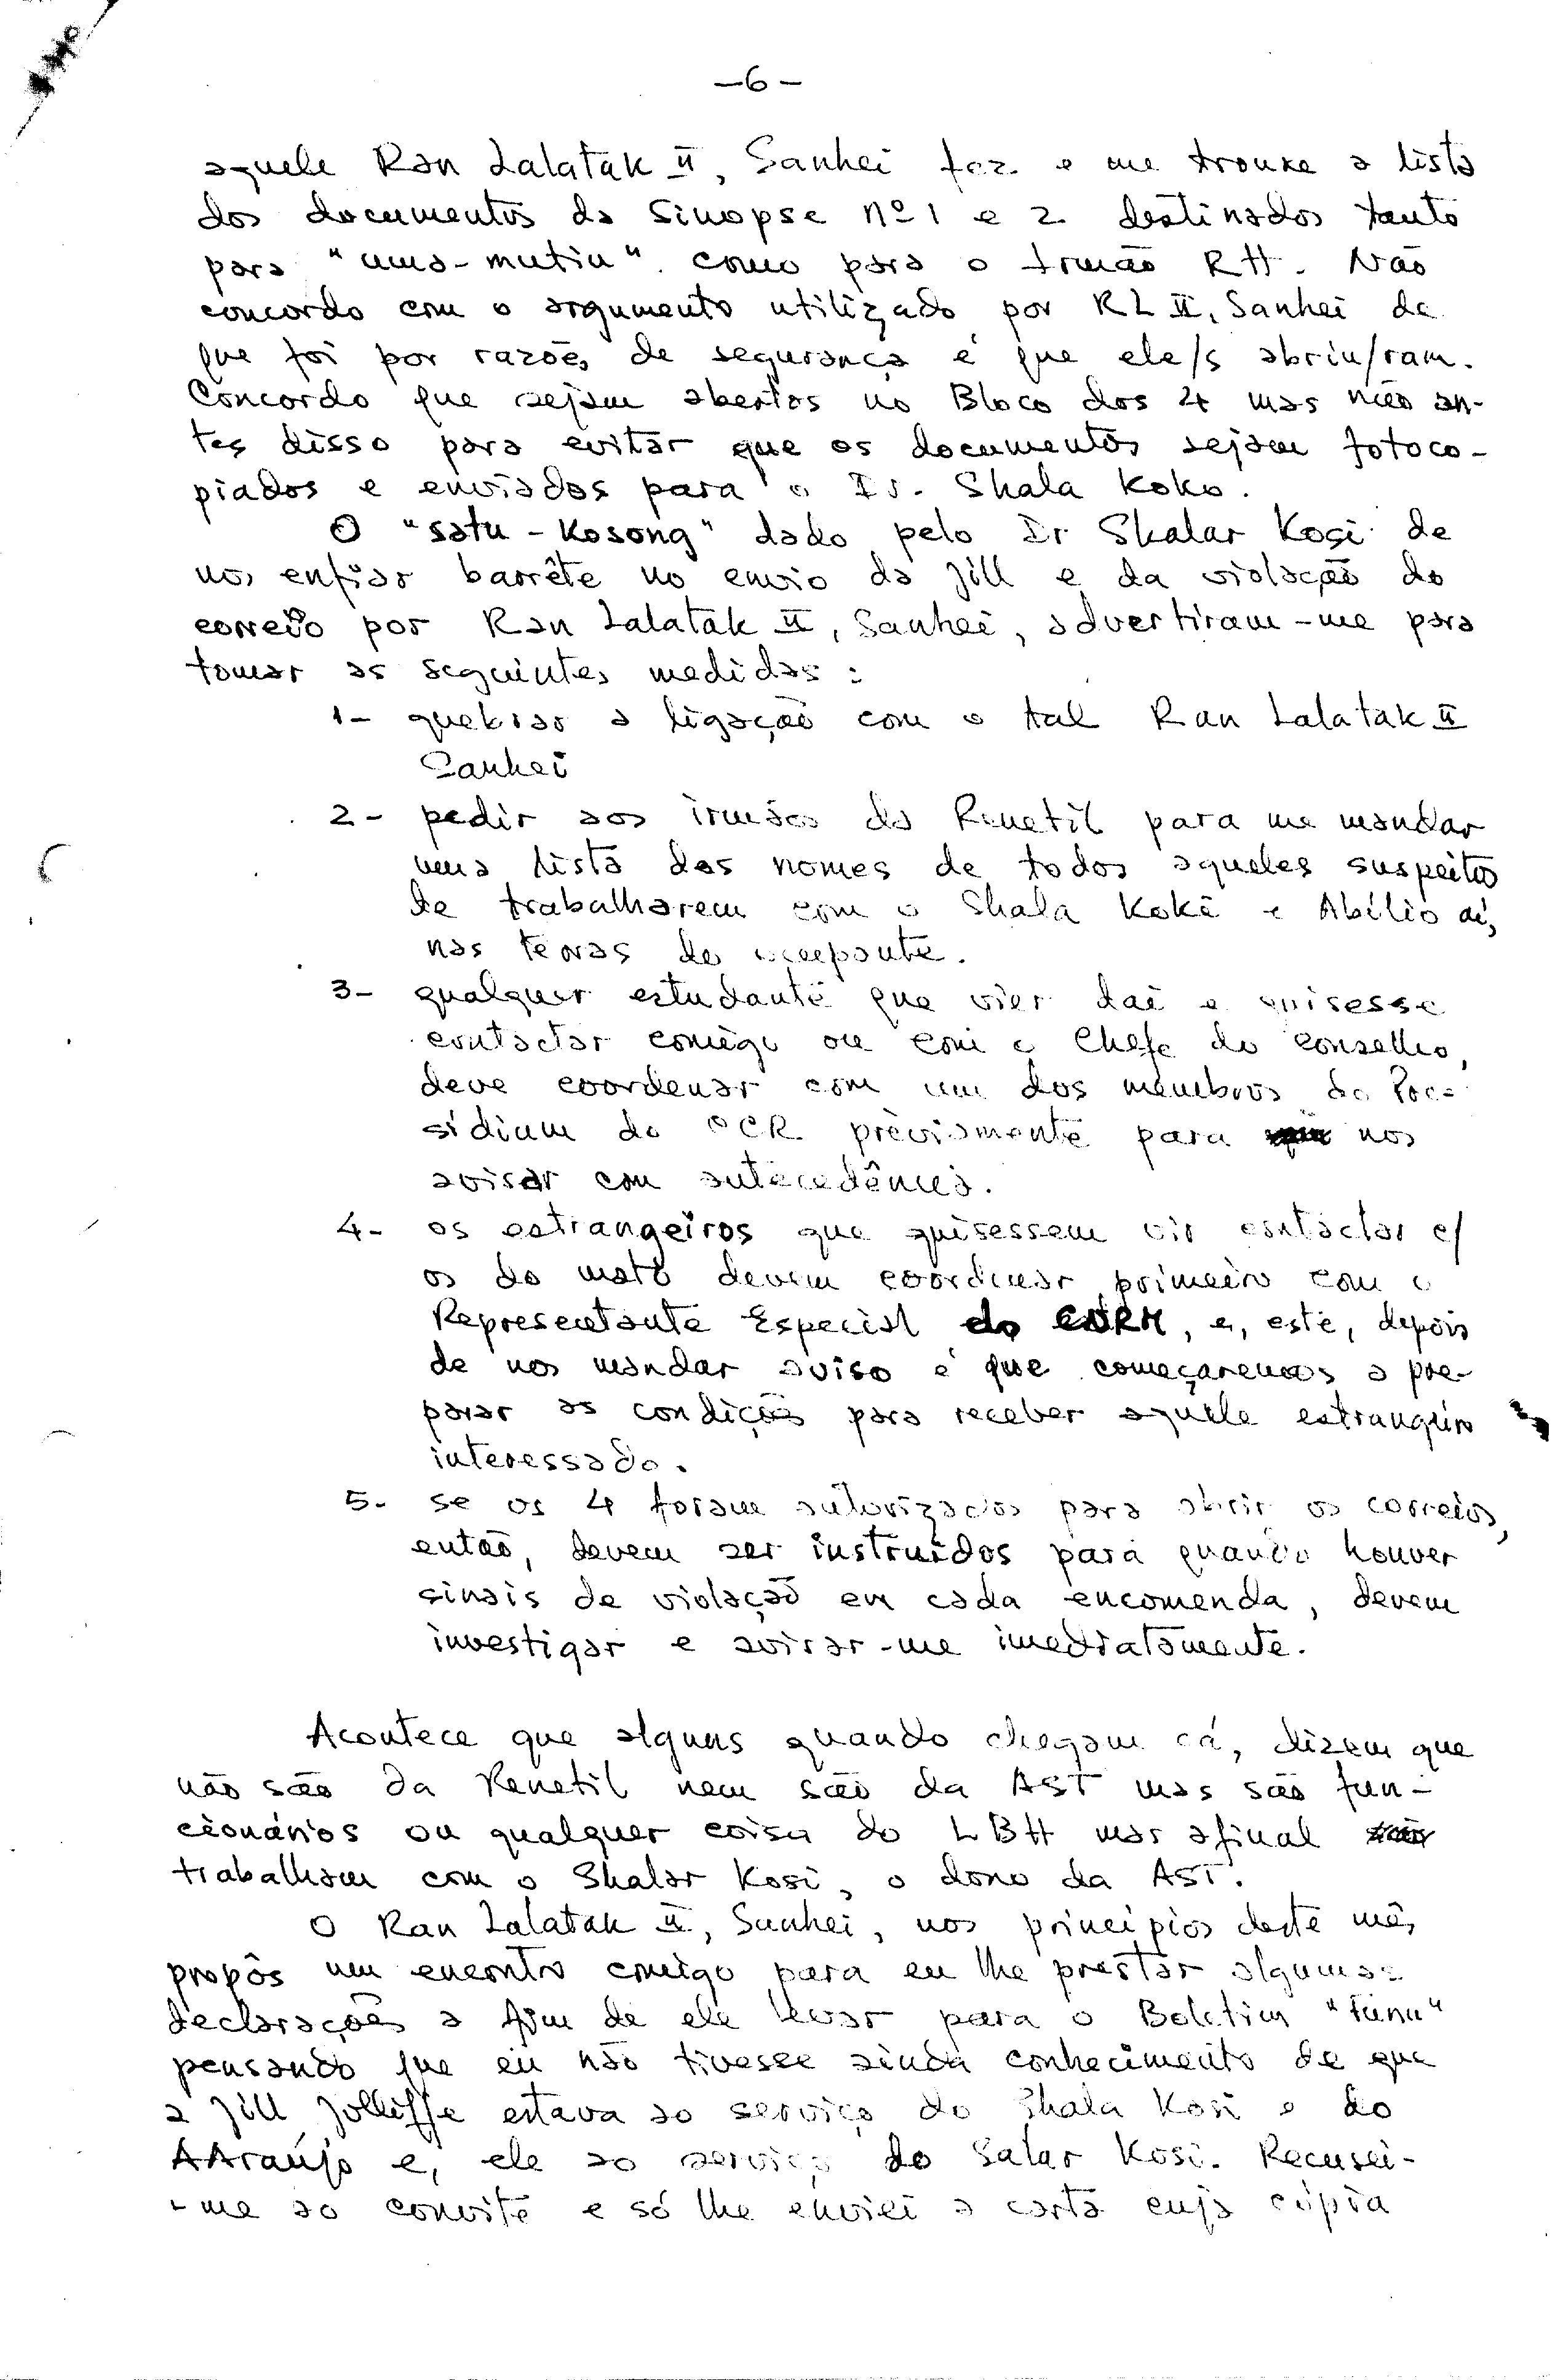 —6—
aquele Ran Lalatak II, Sanhei fez e me trouxe a lista
dos documentos da Sinopse nº 1 e 2 destinados tanto
para "uma-mutin" como para o Irmão RH. Não
concordo com o argumento utilizado por RL II, Sanhei de
que foi por razões de segurança é que ele/s abriu/ram.
Concordo que sejam abertos no Bloco dos 4 mas não an-
tes disso para evitar que os documentos sejam fotoco-
piados e enviados para o Ir. Shala Koko.
O "satu-Kosong" dado pelo Ir Shalar Kosi de
nos enfiar barrête no envio da Jill e da violação do
correio por Ran Lalatak II, Sanhei, advertiram-me para
tomar as seguintes medidas:
1- quebrar a ligação com o tal Ran Lalatak II
Sanhei
2- pedir aos irmãos da Renetil para me mandar
uma lista dos nomes de todos aqueles suspeitos
de trabalharem com o Shala Kokē e Abílio aí,
nas terras do ocupante.
3- qualquer estudante que vier daí e quisesse
contactar comigo ou com o Chefe do Conselho,
deve coordenar com um dos membros da Pre-
sidium do OCR previamente para nos
avisar com antecedência.
4- os estrangeiros que quisessem vir contactar c/
os do mato devem coordenar primeiro com o
Representante Especial do CNRM, e, este, depois
de nos mandar aviso é que começaremos a pre-
parar as condições para receber aquele estrangeiro
interessado.
5- se os 4 foram autorizados para abrir os correios,
então, devem ser instruídos para quando houver
sinais de violação em cada encomenda, devem
investigar e avisar-me imediatamente.
Acontece que alguns quando chegam cá, dizem que
não são da Renetil nem são da AST mas são fun-
cionários ou qualquer coisa do LBH mas afinal
trabalham com o Shalar Kosi, o dono da AST.
O Ran Lalatak II, Sanhei, nos princípios deste mês,
propôs um encontro comigo para eu lhe prestar algumas
declarações a fim de ele levar para o Boletim "Funu"
pensando que eu não tivesse ainda conhecimento de que
a Jill Jolliffe estava ao serviço do Shala Kosi e do
AAraújo e, ele ao serviço do Salar Kosi. Recusei-
-me ao convite e só lhe enviei a carta cuja cópia